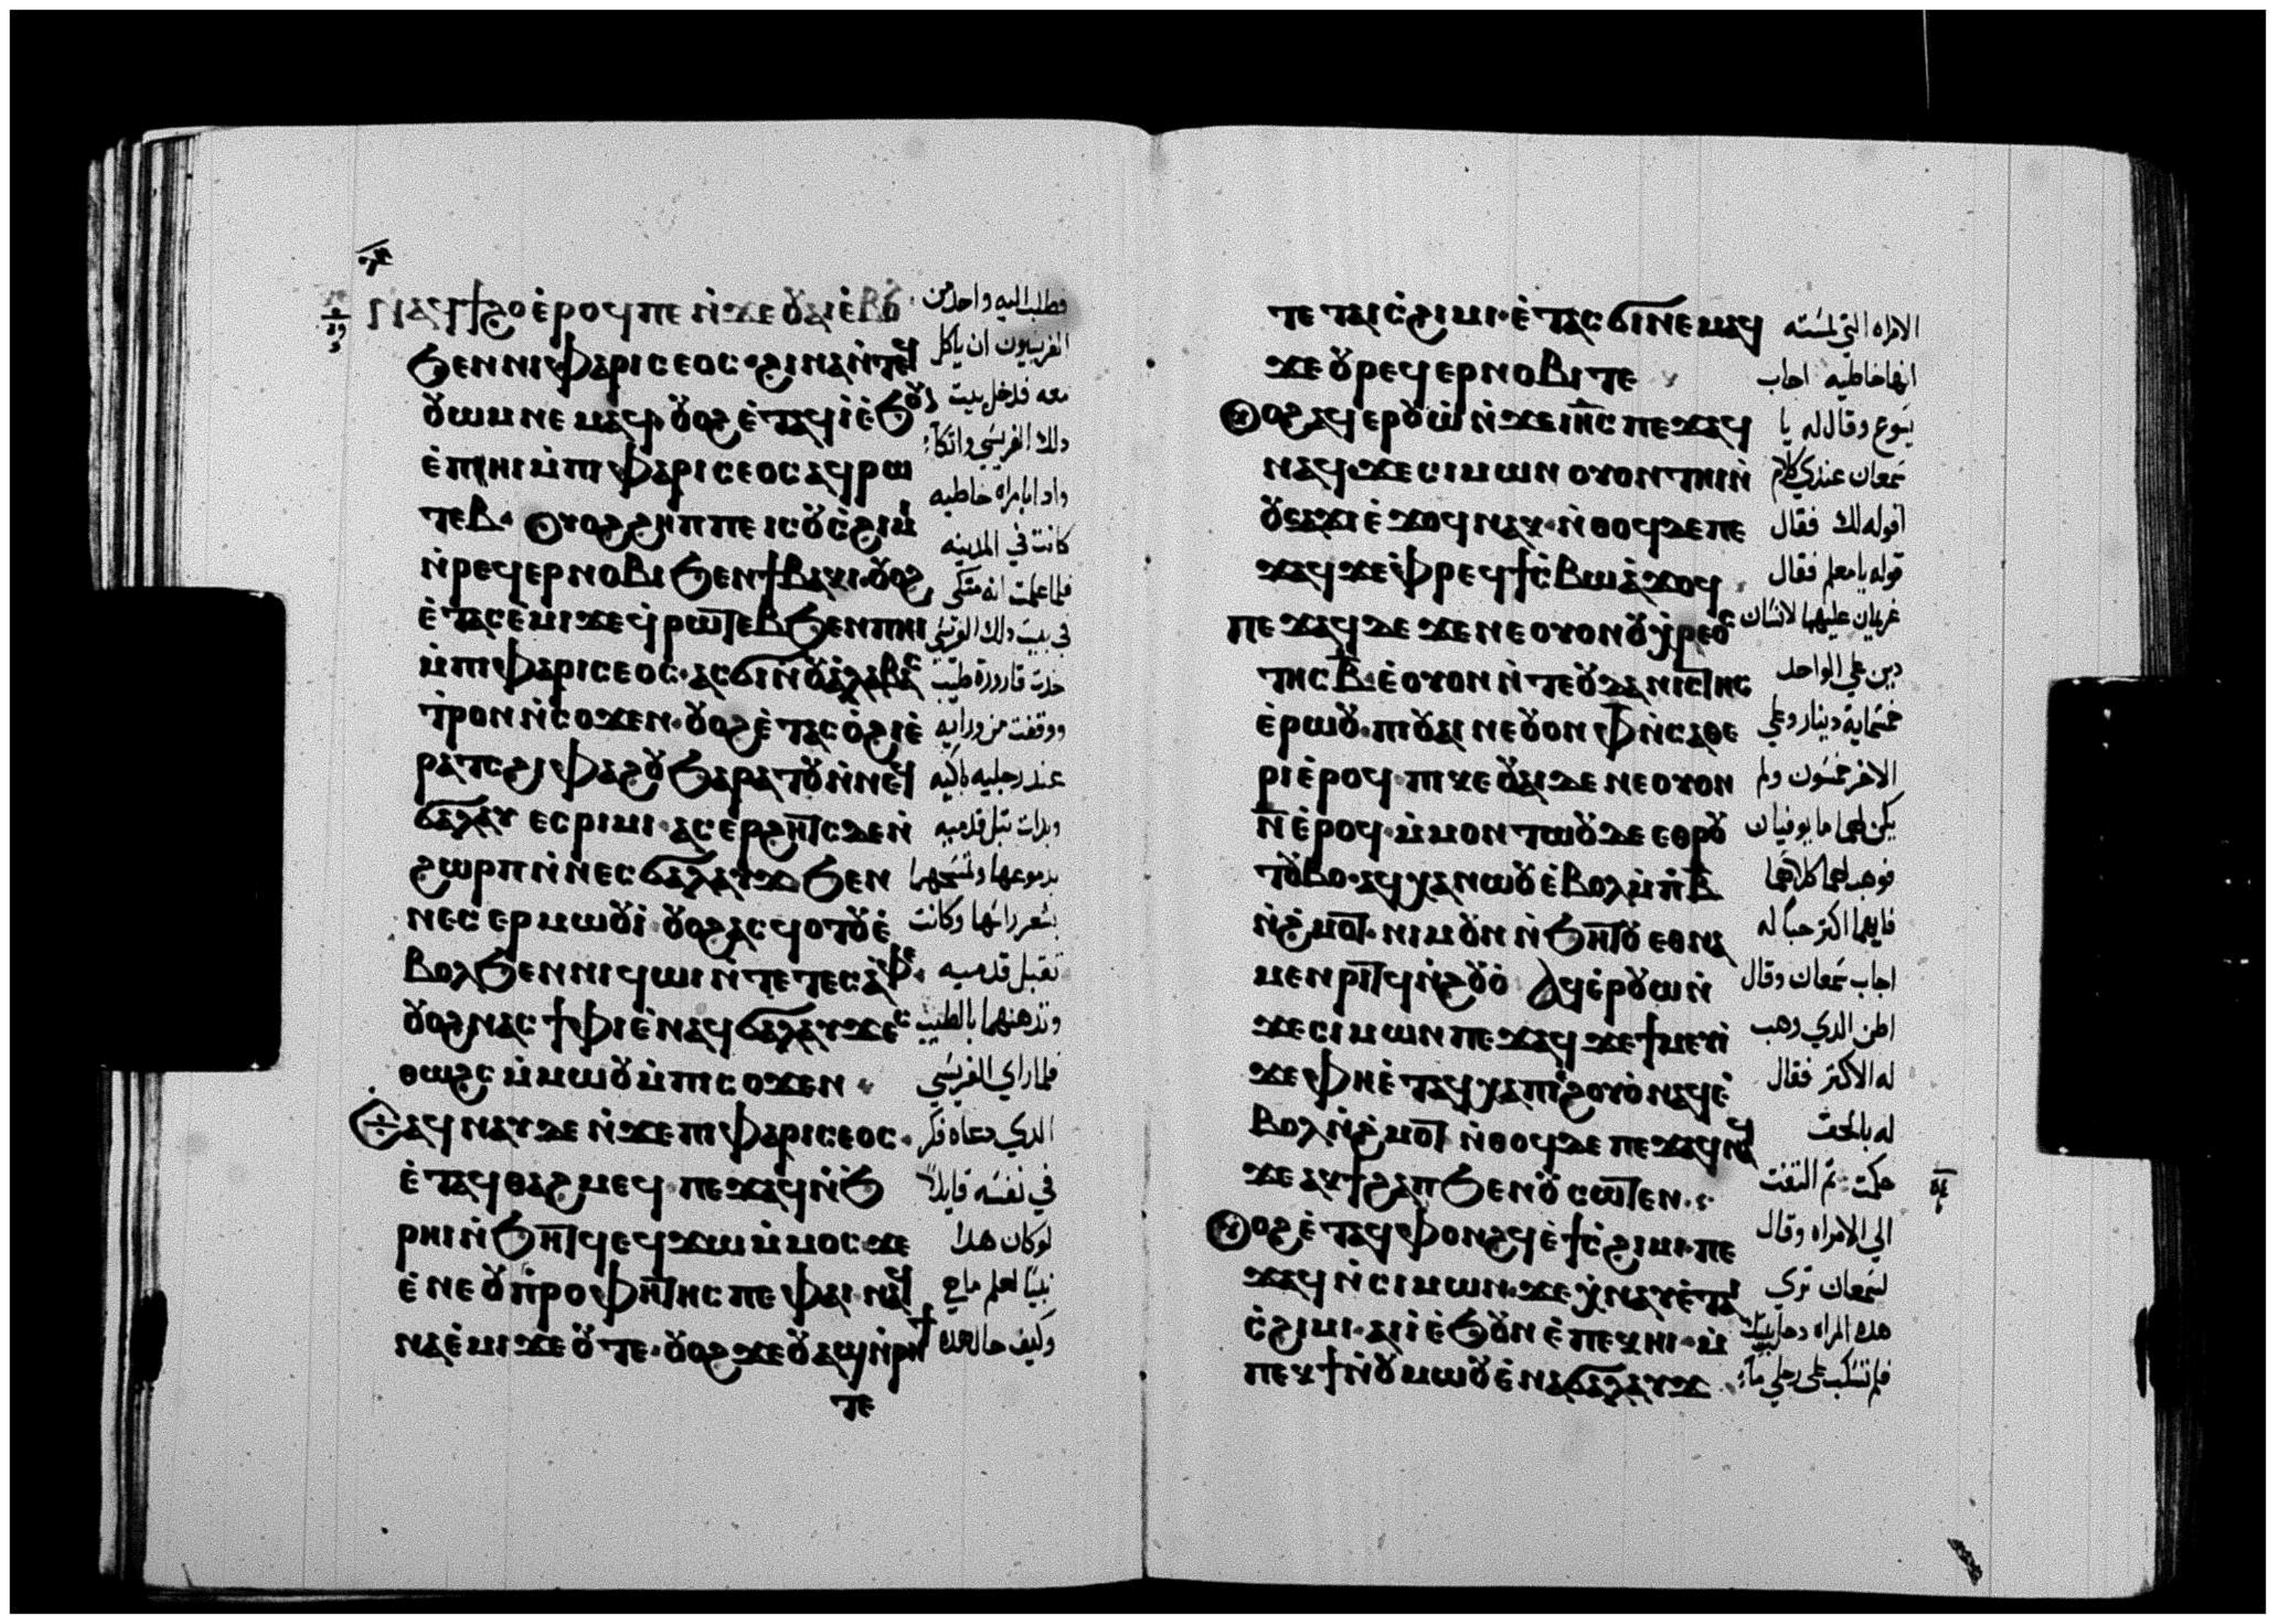 ⲛⲁϥϯϩⲟ ⲉ̀ⲣⲟϥ ⲡⲉ ⲛ̀ϫⲉ ⲟⲩⲁⲓ ⲉ̀ⲃⲟ
ϧⲉⲛ ⲛⲓⲫⲁⲣⲓⲥⲉⲟⲥ · ϩⲓⲛⲁ ⲛ̀ⲧⲉϥ
ⲟⲩⲱⲙ ⲛⲉⲙⲁϥ ⲟⲩⲟϩ ⲉ̀ⲧⲁϥⲓ̀ ⲉ̀ϧⲟⲩ
ⲉ̀ⲡⲏⲓ ⲙ̀ⲡⲓⲫⲁⲣⲓⲥⲉⲟⲥ ⲁϥⲣⲱ
ⲧⲉⲃ · ⲟⲩⲟϩ ϩⲏⲡⲡⲉ ⲓⲥ ⲟⲩⲥ̀ϩⲓⲙ
ⲛ̀ⲣⲉϥⲉⲣⲛⲟⲃⲓ ϧⲉⲛ ϯⲃⲁⲕⲓ · ⲟⲩⲟϩ
ⲉ̀ⲧⲁⲥⲉ̀ⲙⲓ ϫⲉ ϥ̀ⲣⲱⲧⲉⲃ ϧⲉⲛ ⲡⲏⲓ
ⲙ̀ⲡⲓⲫⲁⲣⲓⲥⲉⲟⲥ · ⲁⲥϭⲓ ⲛ̀ⲟⲩⲁ̀ⲗⲁⲃⲁⲥ
ⲧⲣⲟⲛ ⲛ̀ⲥⲟϫⲉⲛ · ⲟⲩⲟϩ ⲉ̀ⲧⲁⲥⲟ̀ϩⲓ ⲉ̀
ⲣⲁⲧⲥ ϩⲓ ⲫⲁϩⲟⲩ ϧⲁⲣⲁⲧⲟⲩ ⲛ̀ⲛⲉϥ
ϭⲁⲗⲁⲩϫ ⲉⲥⲣⲓⲙⲓ · ⲁⲥⲉⲣϩⲏⲧⲥ ⲇⲉ ⲛ̀
ϩⲱⲣⲡ ⲛ̀ⲛⲉϥϭⲁⲗⲁⲩϫ ϧⲉⲛ
ⲛⲉⲥⲉⲣⲙⲱⲟⲩⲓ̀ · ⲟⲩⲟϩ ⲁⲥϥⲟⲧⲟⲩ ⲉ̀
ⲃⲟⲗ ϧⲉⲛ ⲛⲓϥⲱⲓ ⲛ̀ⲧⲉ ⲧⲉⲥⲁ̀ⲫⲉ ·
ⲟⲩⲟϩ ⲛⲁⲥϯⲫⲓ ⲉ̀ⲛⲁϥϭⲁⲗⲁⲩϫ ⲉⲥ
ⲑⲱϩⲥ ⲙ̀ⲙⲱⲟⲩ ⲙ̀ⲡⲓⲥⲟϫⲉⲛ
ⲉ̀ⲧⲁϥⲛⲁⲩ ⲇⲉ ⲛ̀ϫⲉ ⲡⲓⲫⲁⲣⲓⲥⲉⲟⲥ ·
ⲉ̀ⲧⲁϥⲑⲁϩⲙⲉϥ · ⲡⲉϫⲁϥ ⲛ̀ϧ̀
ⲣⲏⲓ ⲛ̀ϧⲏⲧϥ ⲉϥϫⲱ ⲙ̀ⲙⲟⲥ ϫⲉ
ⲉ̀ⲛⲉ ⲟⲩⲡ̀ⲣⲟⲫⲏⲧⲏⲥ ⲡⲉ ⲫⲁⲓ ⲛⲁϥ
ⲛⲁⲉ̀ⲙⲓ ϫⲉ ⲟⲩ ⲧⲉ · ⲟⲩⲟϩ ϫⲉ ⲟⲩ ⲁϣ ⲛ̀ⲣⲏϯ
ⲧⲉ
فطلب اليه واحد من
الفريسيون ان ياكل
معه فدخل بيت
دلك الفريسي واتكآ
واد ابامراه خاطيه
كانت في المدينه
فلما علمت انه متكى
في بيت دلك الفريسي
خدت قارورة طيب
ووقفت من ورايه
عند رجليه باكيه
وبدات تبل قدميه
بدموعها وتمسحهما
بشعر راسها وكانت
تقبل قدميه
وتدهنهما بالطيب
فلما راي الفريسي
الدي دعاه فكر
في نفسه قايلاً
لو كان هدا
نبيًا لعلم ما هي
وكيف حال هده
ⲧⲉ ⲧⲁⲓⲥ̀ϩⲓⲙⲓ · ⲉ̀ⲧⲁⲥϭⲓ ⲛⲉⲙⲁϥ
ϫⲉ ⲟⲩⲣⲉϥⲉⲣⲛⲟⲃⲓ ⲧⲉ
ⲟⲩⲟϩ ⲁϥⲉⲣⲟⲩⲱ̀ ⲛ̀ϫⲉ ⲓⲏⲥ ⲡⲉϫⲁϥ
ⲛⲁϥ ϫⲉ ⲥⲓⲙⲱⲛ ⲟⲩⲟⲛⲧⲏⲓ ⲛ̀
ⲟⲩⲥⲁϫⲓ ⲉ̀ϫⲟϥ ⲛⲁⲕ · ⲛ̀ⲑⲟϥ ⲇⲉ ⲡⲉ
ϫⲁϥ ϫⲉ ⲫⲣⲉϥϯⲥ̀ⲃⲱ ⲁ̀ϫⲟϥ
ⲡⲉϫⲁϥ ⲇⲉ ϫⲉ ⲛⲉ ⲟⲩⲟⲛ ⲟⲩⲭ̀ⲣⲉⲟⲥ
ⲧⲏⲥ ⲃ̅ · ⲉ̀ⲟⲩⲟⲛ ⲛ̀ⲧⲉ ⲟⲩⲇⲁⲛⲓⲥⲧⲏⲥ
ⲉ̀ⲣⲱⲟⲩ · ⲡⲓⲟⲩⲁⲓ ⲛⲉ ⲟⲩⲟⲛ ⲫ̅ ⲛ̀ⲥⲁⲑⲉ
ⲣⲓ ⲉ̀ⲣⲟϥ · ⲡⲓⲕⲉⲟⲩⲁⲓ ⲇⲉ ⲛⲉ ⲟⲩⲟⲛ
ⲛ̅ ⲉ̀ⲣⲟϥ · ⲙ̀ⲙⲟⲛⲧⲱⲟⲩ ⲇⲉ ⲉⲑⲣⲟⲩ
ⲧⲟⲩⲃⲟ · ⲁϥⲭⲁⲛⲱⲟⲩ ⲉ̀ⲃⲟⲗ ⲙ̀ⲡⲃ̅
ⲛ̀ϩ̀ⲙⲟⲧ · ⲛⲓⲙ ⲟⲩⲛ ⲛ̀ϧⲏⲧⲟⲩ ⲉⲑⲛⲁ
ⲙⲉⲛⲣⲓⲧϥ ⲛ̀ϩⲟⲩⲟ̀ ⲁϥⲉ̀ⲣⲟⲩⲱ ⲛ̀
ϫⲉ ⲥⲓⲙⲱⲛ ⲡⲉϫⲁϥ ϫⲉ ϯⲙⲉⲩⲓ̀
ϫⲉ ⲫⲏ ⲉ̀ⲧⲁϥⲭⲁ ⲡⲓϩⲟⲩⲟ̀ ⲛⲁϥ ⲉ̀
ⲃⲟⲗ ⲛ̀ϩ̀ⲙⲟⲧ ⲛ̀ⲑⲟϥ ⲇⲉ ⲡⲉϫⲁϥ ⲛⲁϥ
ϫⲉ ⲁⲕϯϩⲁⲡ ϧⲉⲛ ⲟⲩⲥⲱⲧⲉⲛ
ⲟⲩⲟϩ ⲉ̀ⲧⲁϥⲫⲟⲛϩϥ ⲉ̀ϯⲥ̀ϩⲓⲙⲓ · ⲡⲉ
ϫⲁϥ ⲛ̀ⲥⲓⲙⲱⲛ · ϫⲉ ⲭ̀ⲛⲁⲩ ⲉ̀ⲧⲁⲓ
ⲥ̀ϩⲓⲙⲓ · ⲁⲓⲓ̀ ⲉ̀ϧⲟⲩⲛ ⲉ̀ⲡⲉⲕⲏⲓ · ⲙ̀
ⲡⲉⲕϯ ⲛ̀ⲟⲩⲙⲱⲟⲩ ⲉ̀ⲛⲁϭⲁⲗⲁⲩϫ
الامراه التي لمسته
انها خاطيه اجاب
يسوع وقال له يا
سمعان عندي كلام
اقوله لك فقال
قوله يا معلم فقال
غريمان عليهما لانسان
دين علي الواحد
خمسماية دينار وعلي
الاخر خمسون ولم
يكن لهما ما يوفيان
فوهب لهما كلاهما
فايهما اكتر حبا له
اجاب سمعان وقال
اظن الدي وهب
له الاكتر فقال
له بالحق
حكمت تم التفت
الي الامراه وقال
لسمعان تري
هده المراه دخل بيتك
فلم تسكب على رجلي مآ